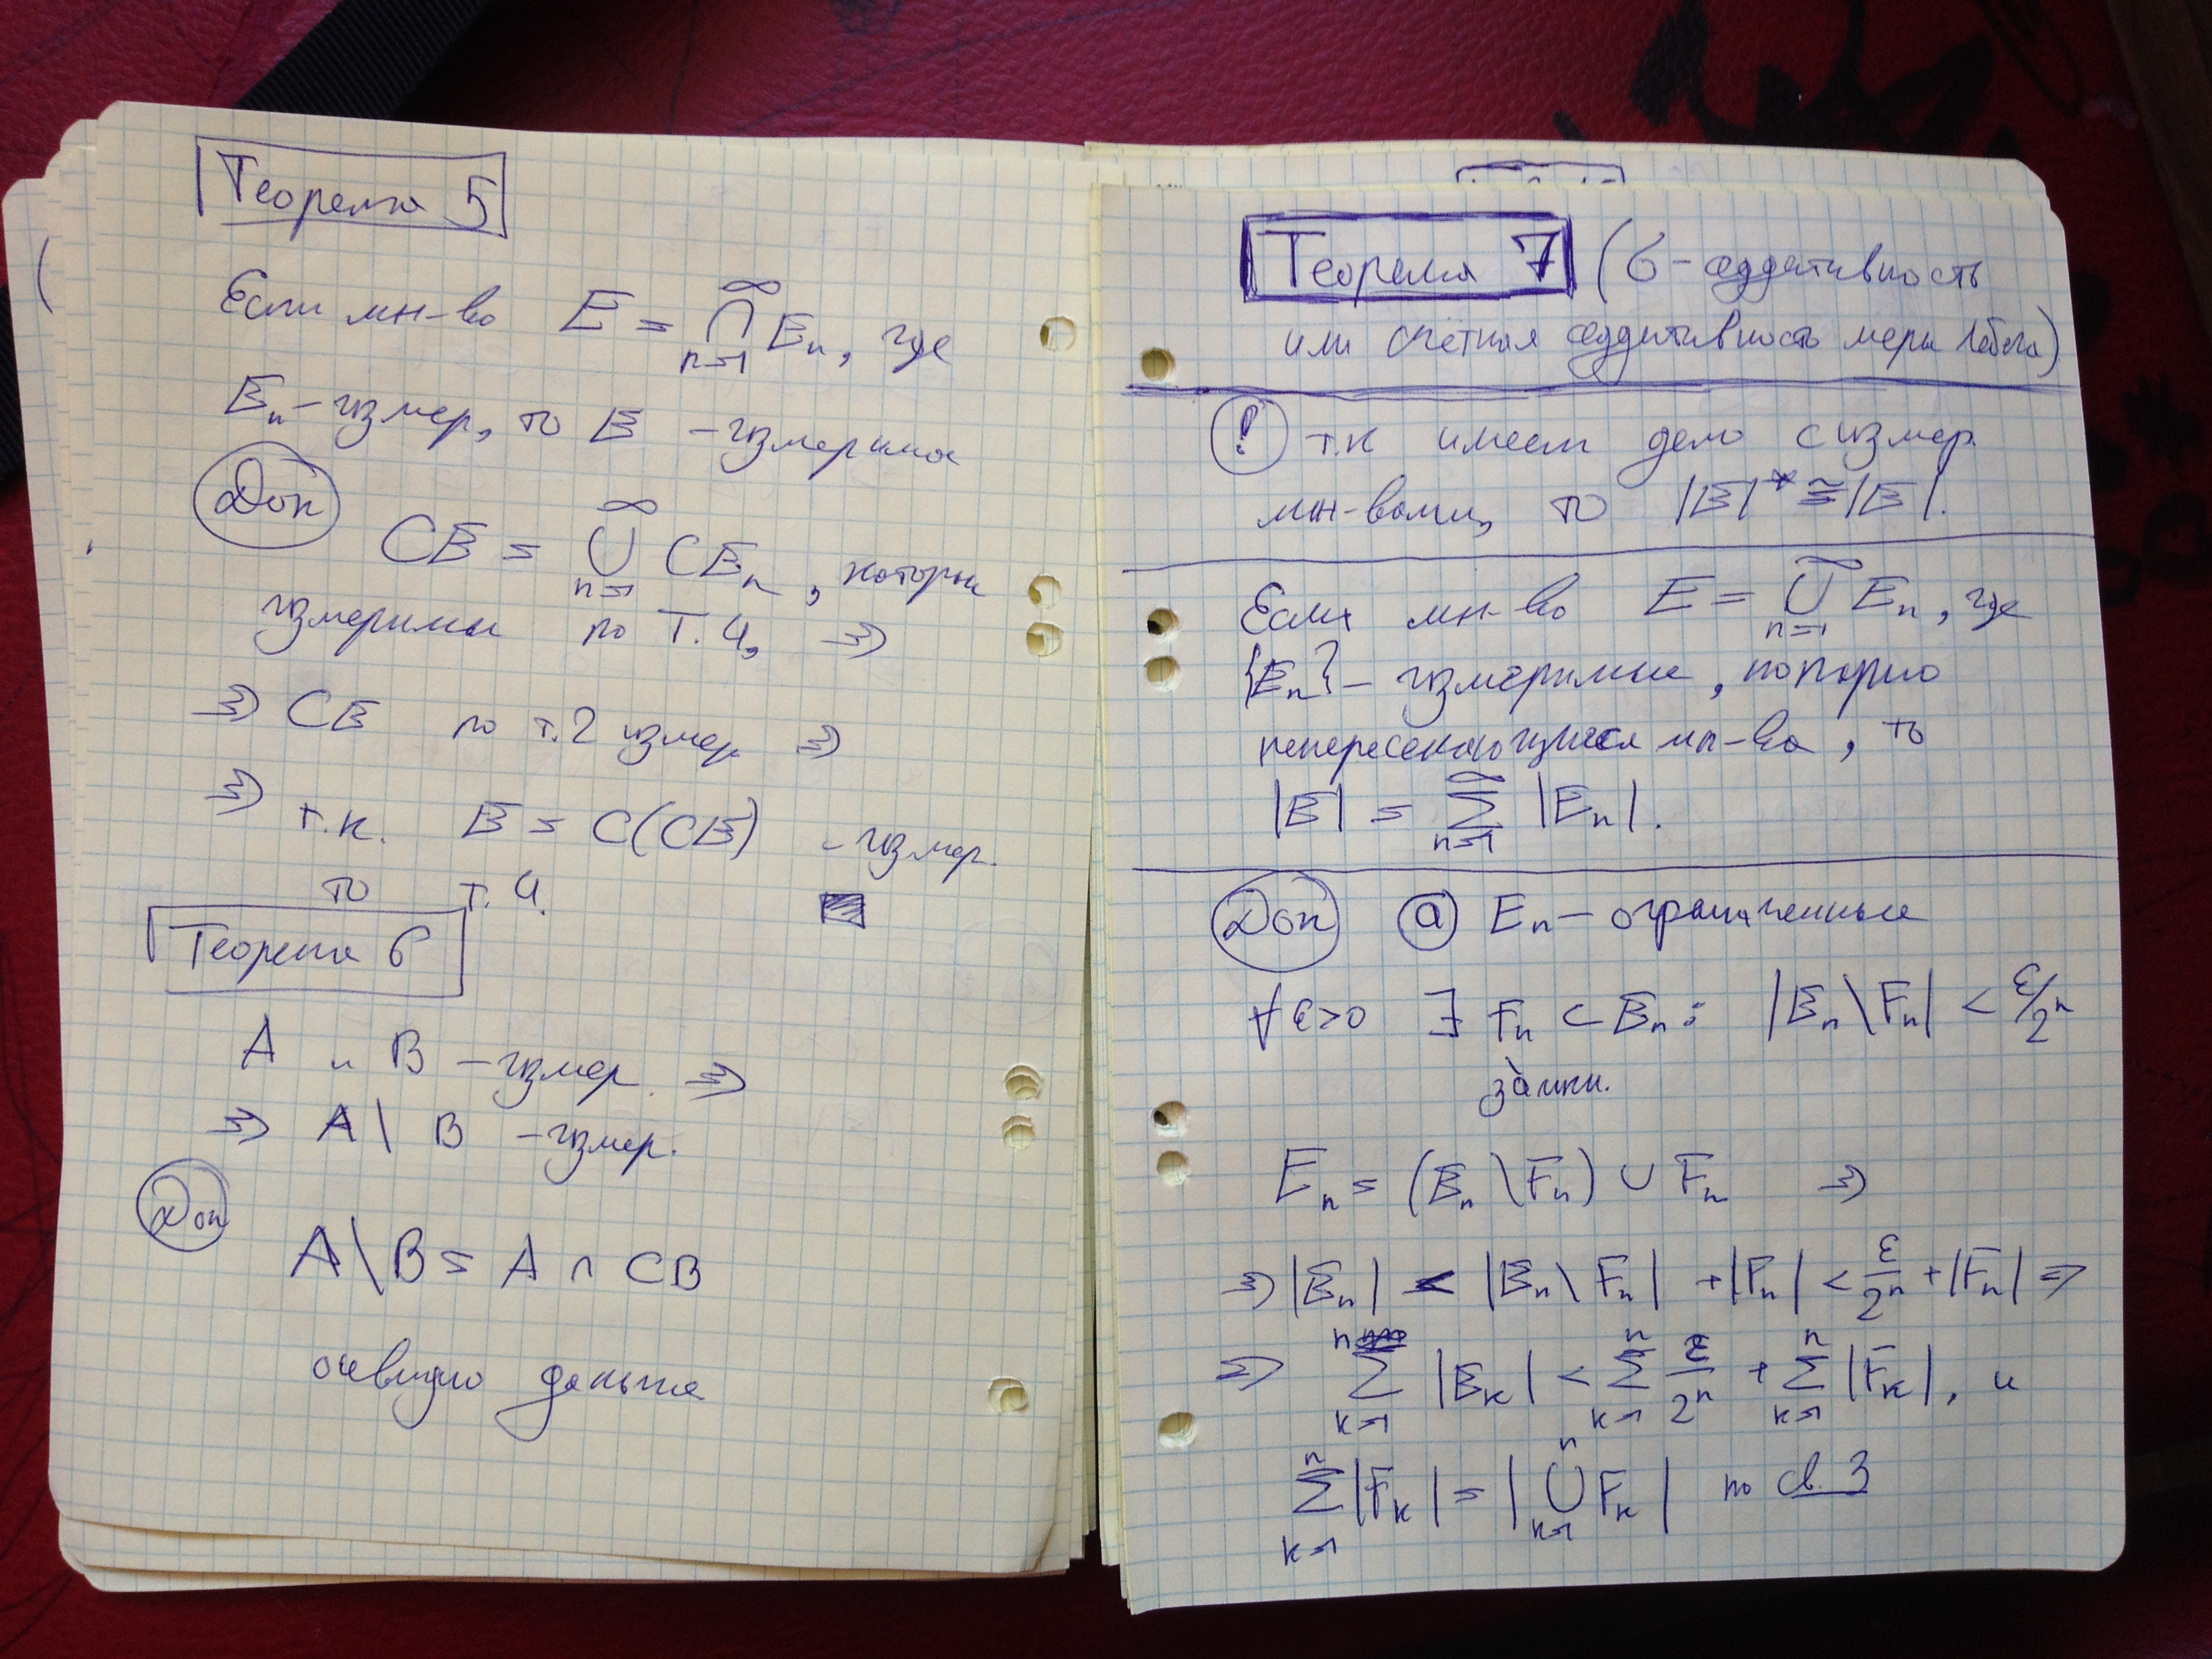 Теорема 5
Если мн-во E = ∩_{n=1}^∞ E_n, где
E_n - измер, то E - измеримо
Док
CE = ∪_{n=1}^∞ CE_n, которые
измеримы по Т.4, ⇒
⇒ CE по т.2 измер ⇒
⇒ т.к. E = C(CE) - измер.
то т.4.
Теорема 6
A и B - измер. ⇒
⇒ A \ B - измер.
Док
A\B = A ∩ CB
очевидно дальше
Теорема 7 (σ-аддитивность
или счётная аддитивность меры Лебега)
! т.к имеем дело с измер.
мн-вами, то |E|* ≅ |E|.
Если мн-во E = ∪_{n=1}^∞ E_n, где
{E_n} - измеримые, попарно
непересекающиеся мн-ва, то
|E| = ∑_{n=1}^∞ |E_n|.
Док ⓐ E_n - ограниченные
∀ε>0 ∃ F_n ⊂ E_n : |E_n \ F_n| < ε/2^n
замкн.
E_n = (E_n \ F_n) ∪ F_n ⇒
⇒ |E_n| < |E_n \ F_n| + |F_n| < ε/2^n + |F_n| ⇒
⇒ ∑_{k=1}^n |E_k| < ∑_{k=1}^n ε/2^n + ∑_{k=1}^n |F_k|, и
∑_{k=1}^n |F_k| = | ∪_{k=1}^n F_k | по св. 3